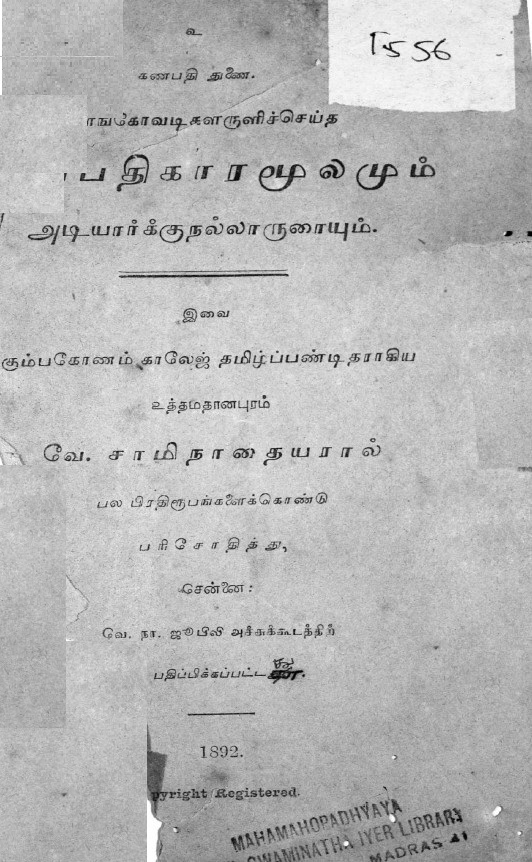 உ
T556
கணபதி துணை.
ங்கோவடிகளருளிச்செய்த
பதிகாரமூலமும்
அடியார்க்குநல்லாருரையும்.
இவை
கும்பகோணம் காலேஜ் தமிழ்ப்பண்டிதராகிய
உத்தமதானபுரம்
வே. சாமிநாதையரால்
பல பிரதிரூபங்களைக்கொண்டு
பரிசோதித்து,
சென்னை:
வே. நா. ஜூபிலி அச்சுக்கூடத்திற்
பதிப்பிக்கப்பட்ட
1892.
pyright Registered.
MAHAMAHOPADHYAYA
SWAMINATHA IYER LIBRARY
MADRAS 41